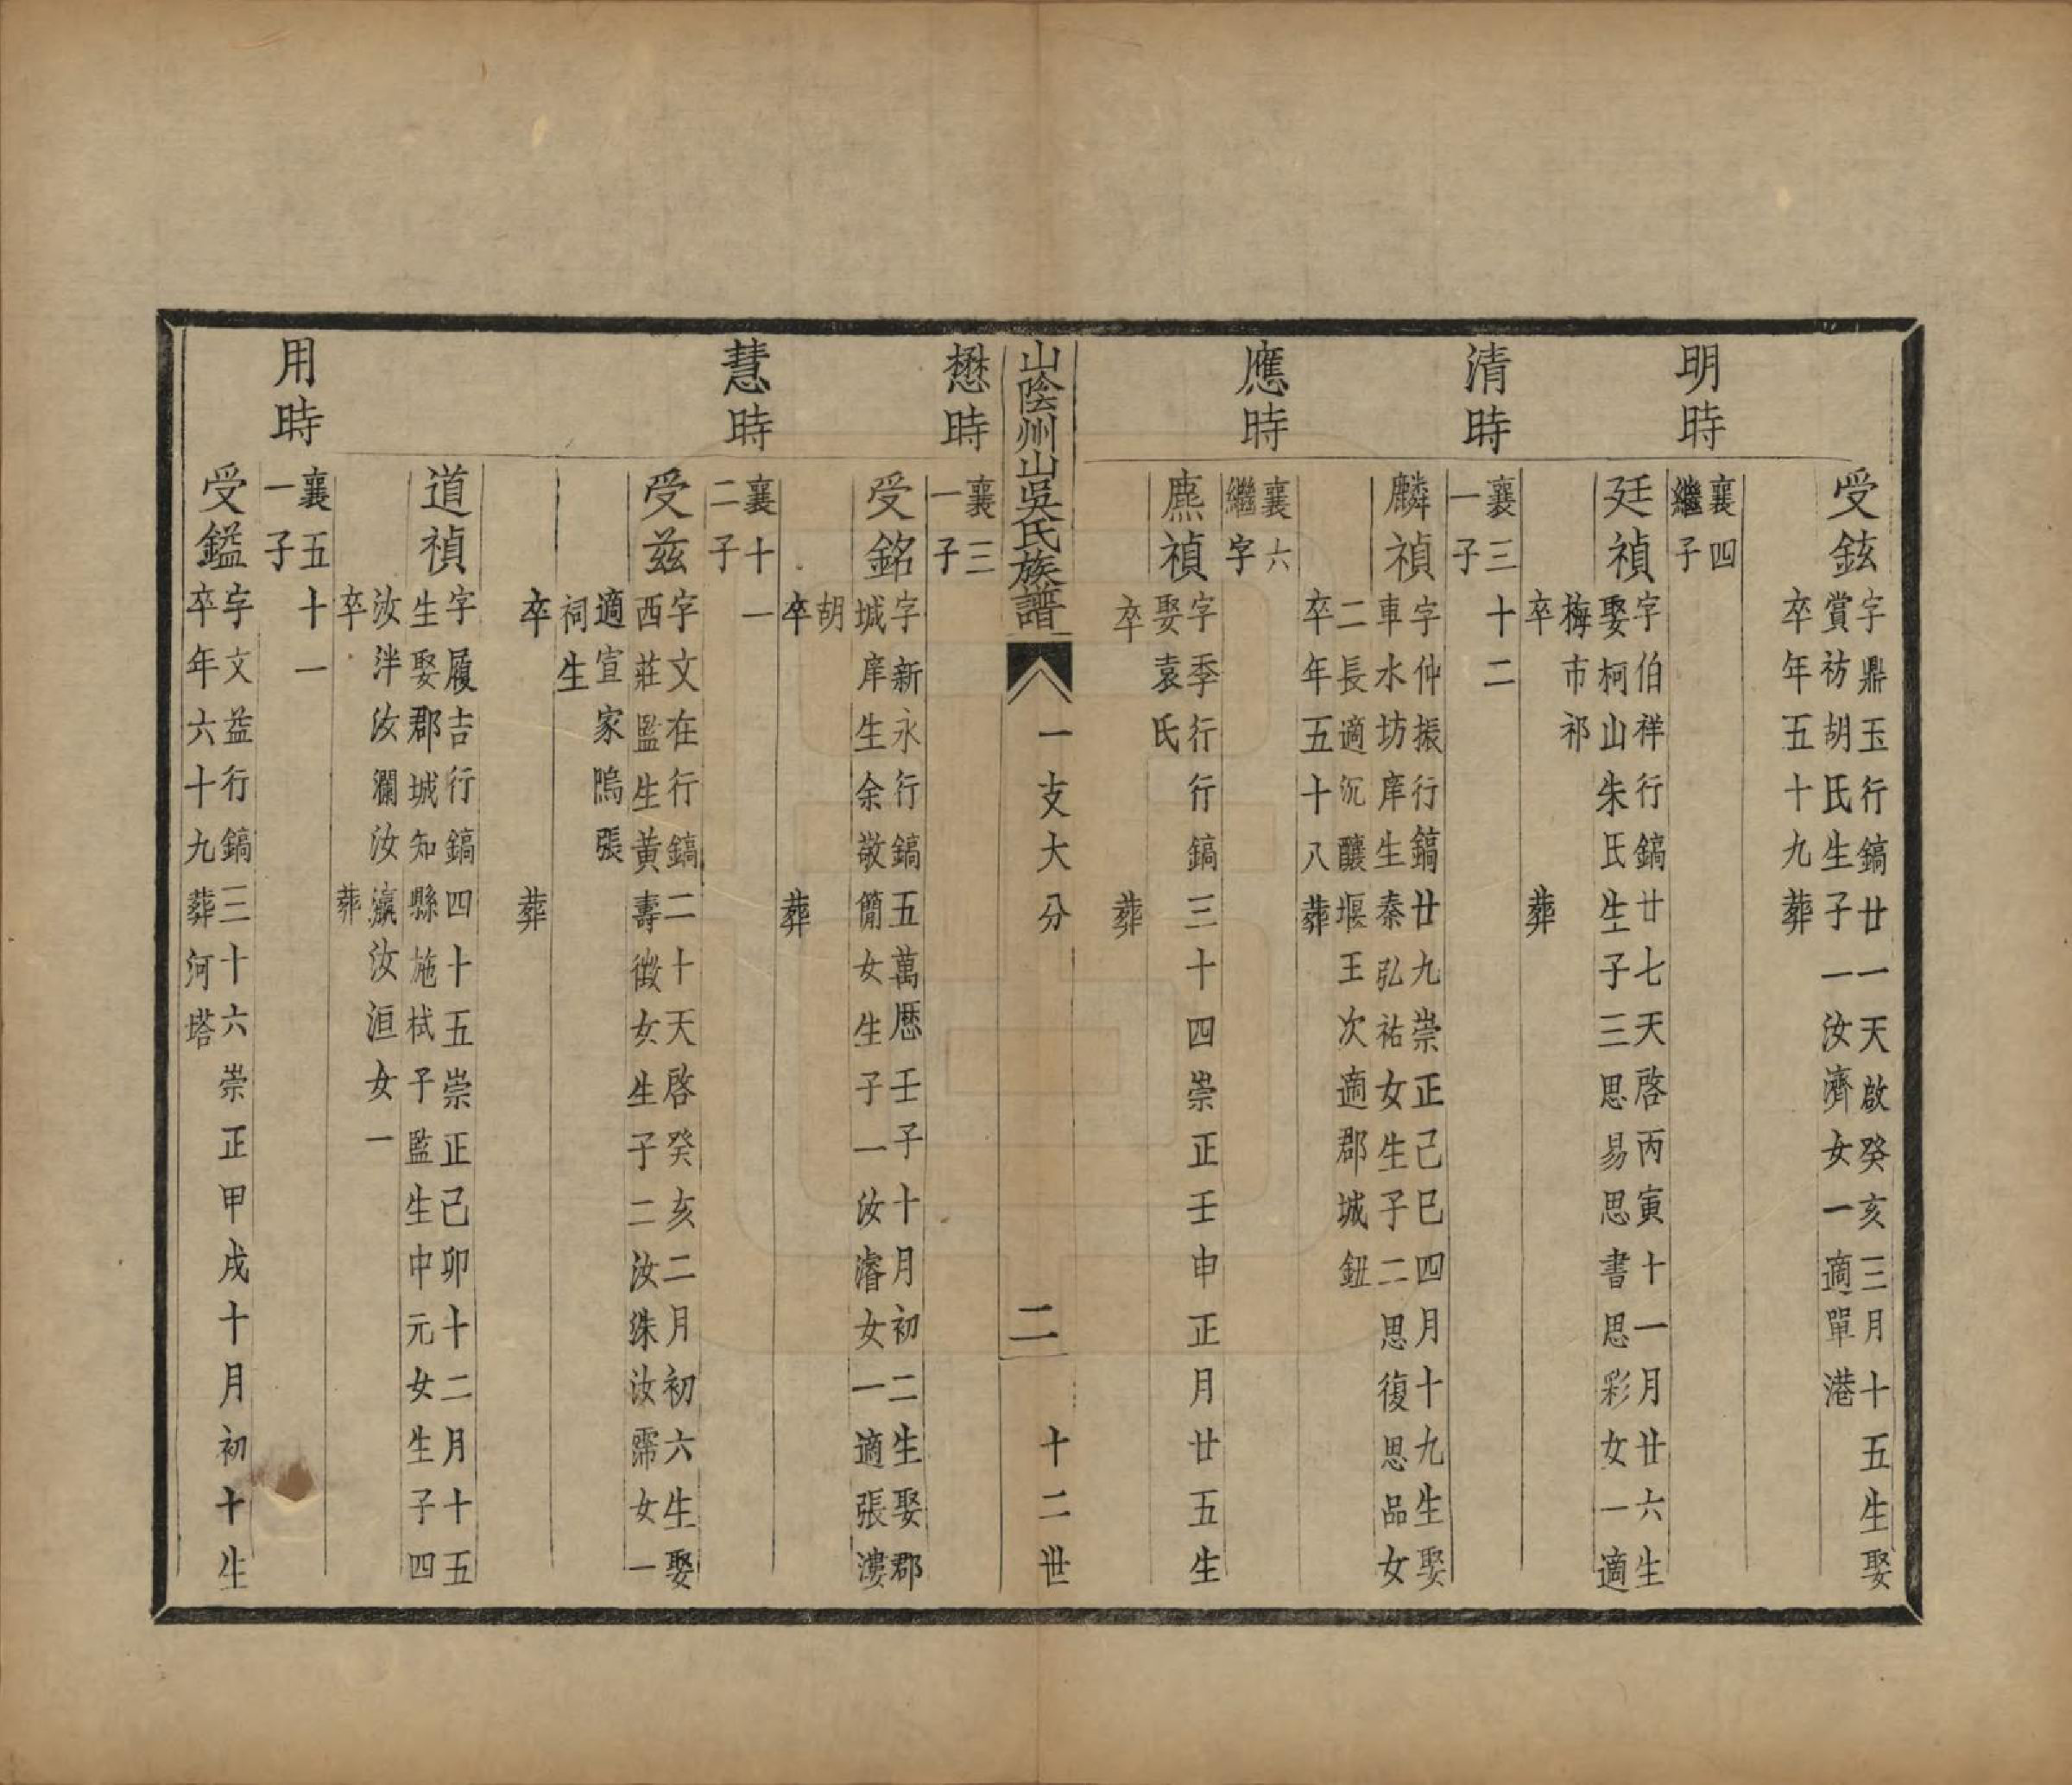 受鉉
字鼎玉行鎬廿一天啟癸亥三月十五生娶
賞祊胡氏生子一汝濟女一適單港
卒年五十九葬
明時
襄四
繼子
廷禎
字伯祥行鎬廿七天啓丙寅十一月廿六生
娶柯山朱氏生子三思易思書思彩女一適
梅市祁
卒 葬
清時
襄三十二
一子
麟禎
字仲振行鎬廿九崇正己巳四月十九生娶
車水坊庠生秦弘祐女生子二思復思品女
二長適沉釀堰王次適郡城鈕
卒年五十八葬
應時
襄六
繼字
廌禎
字季行行鎬三十四崇正壬申正月廿五生
娶袁氏
卒 葬
山陰州山吳氏族譜
一支大分
二
十二世
懋時
襄三
一子
受銘
字新永行鎬五萬厯壬子十月初二生娶郡
城庠生余敬簡女生子一汝濬女一適張漊
胡
卒 葬
慧時
襄十一
二子
受兹
字文在行鎬二十天啓癸亥二月初六生娶
西莊監生黃壽徵女生子二汝綠汝霈女一
適宣家隝張
祠生
卒 葬
道禎
字履吉行鎬四十五崇正己卯十二月十五
生娶郡城知縣施栻子監生中元女生子四
汝泮汝瀾汝瀛汝洹女一
卒 葬
用時
襄五十一
一子
受鎰
字文益行鎬三十六崇正甲戌十月初十生
卒年六十九葬河塔